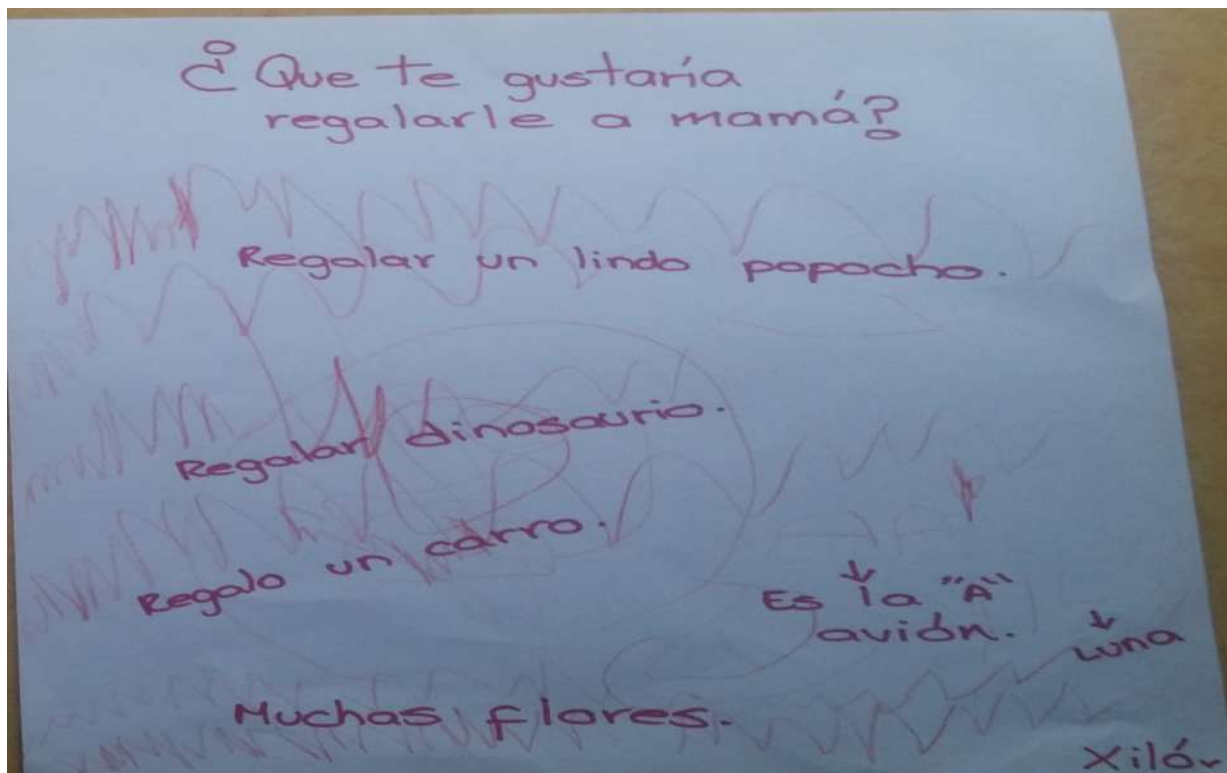 ¿Que te gustaría
regalarle a mamá?
Regalar un lindo popocho.
Regalar dinosaurio.
Regalo un carro.
Es la "A"
avión.
Luna
Muchas flores.